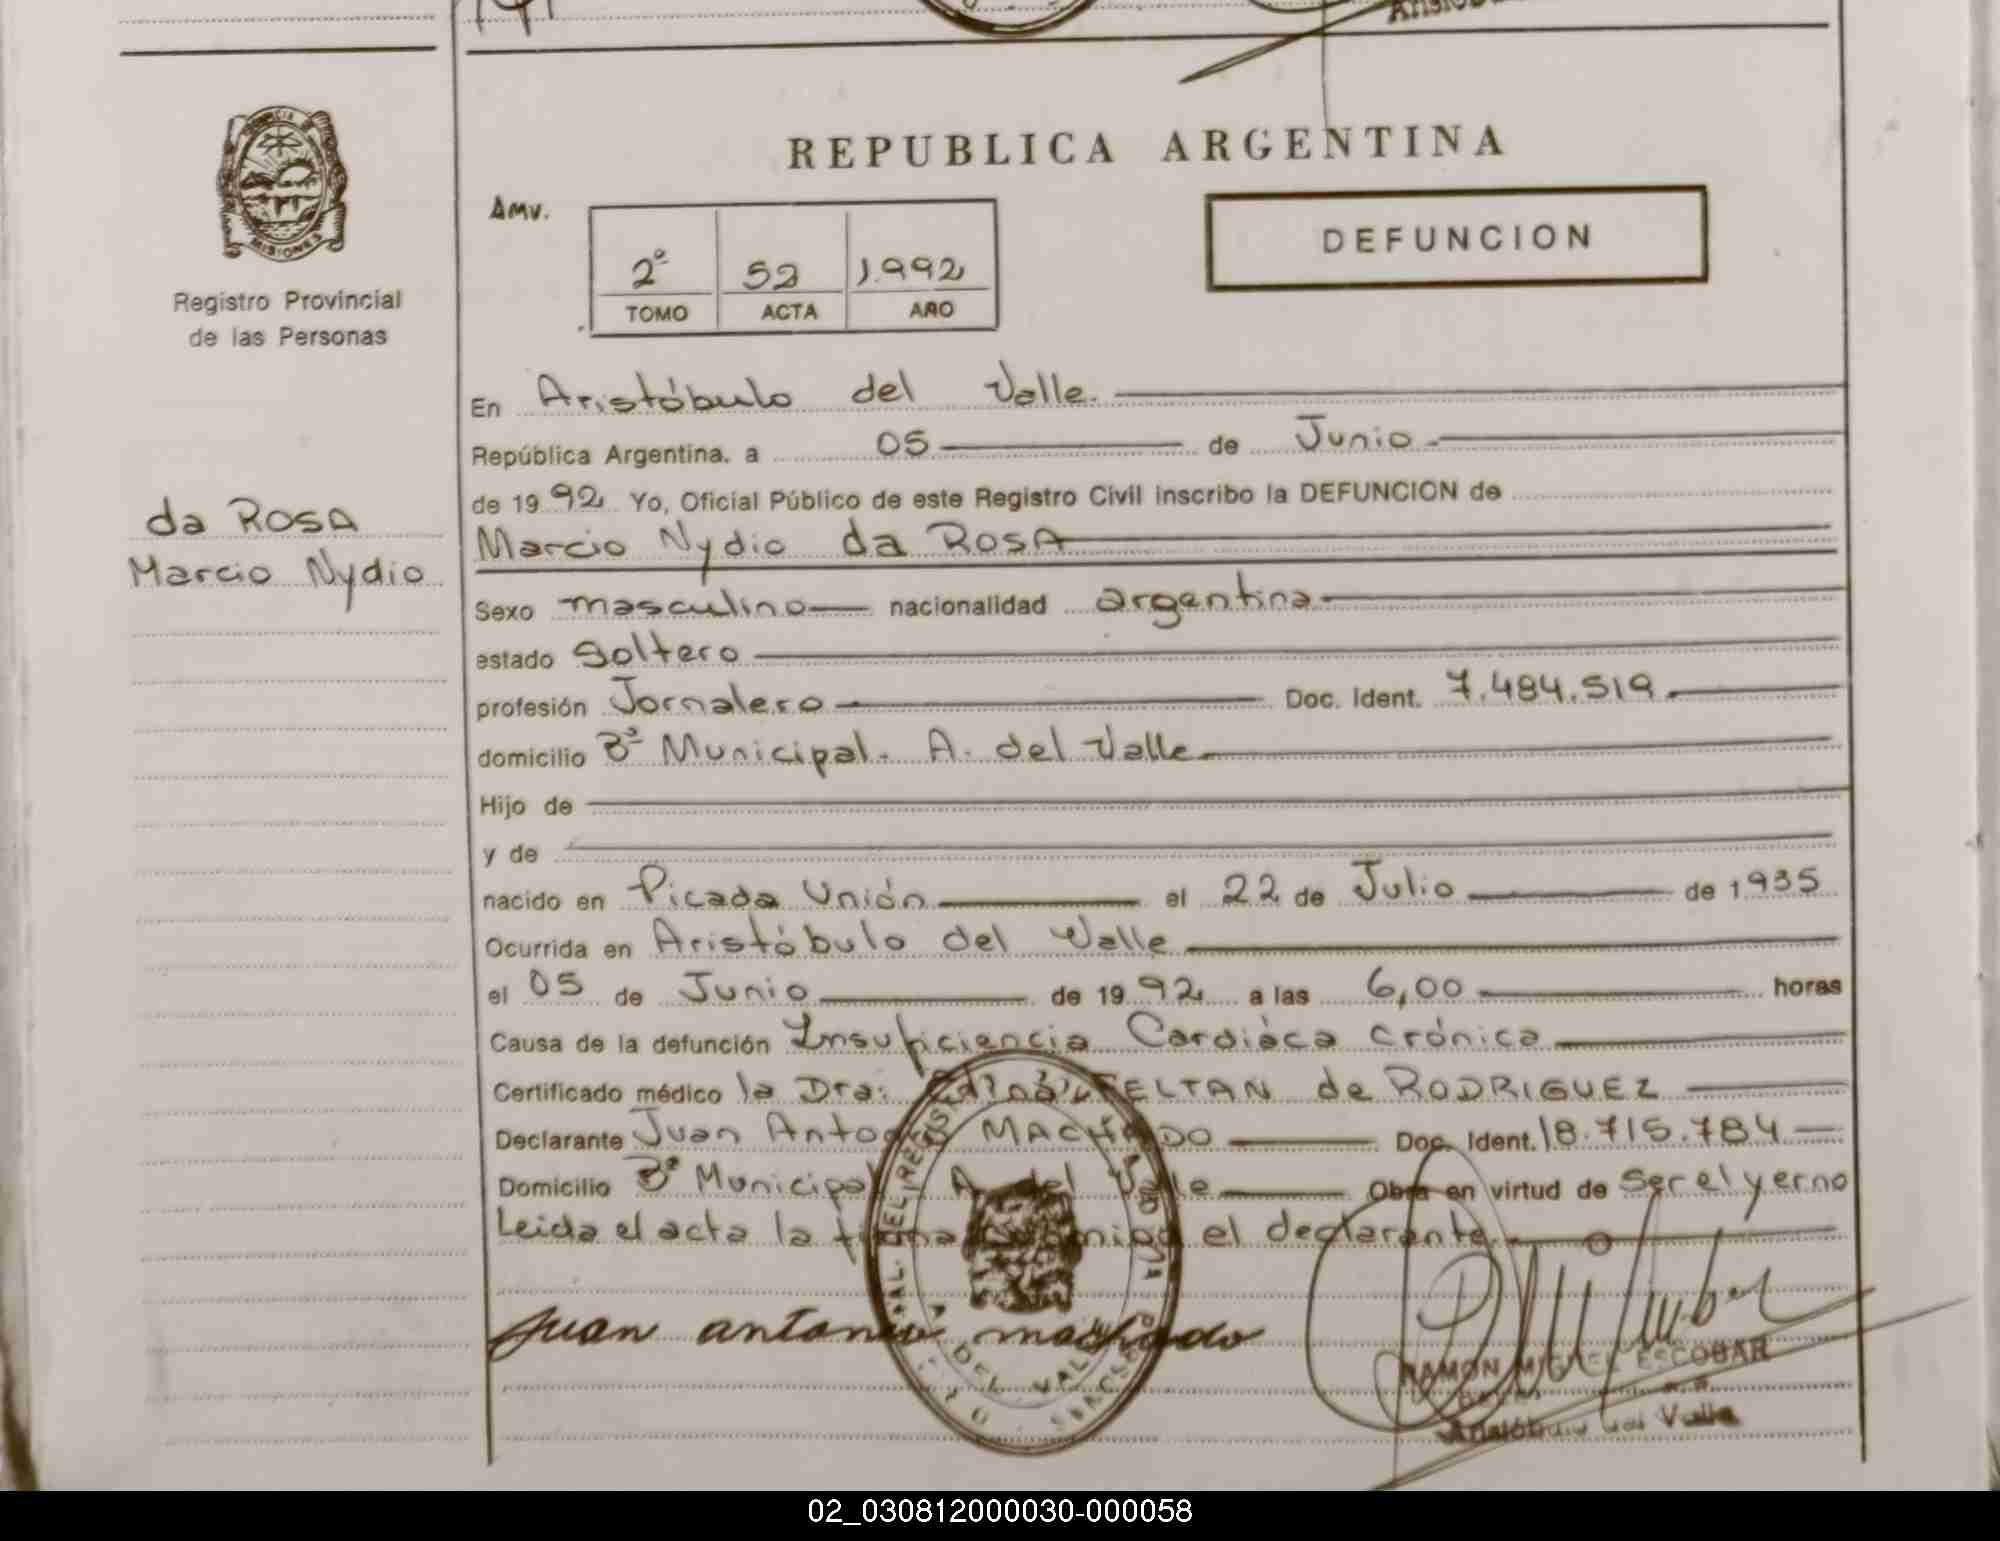 MISIONES
Registro Provincial
de las Personas
da ROSA
Marcio Nydio
REPUBLICA ARGENTINA
Amv.
2º 52 1.992
TOMO ACTA AÑO
DEFUNCION
En Aristóbulo del Valle.
República Argentina, a 05 de Junio
de 1992 Yo, Oficial Público de este Registro Civil inscribo la DEFUNCION de
Marcio Nydio da ROSA
Sexo masculino nacionalidad argentina
estado Soltero
profesión Jornalero Doc. Ident. 7.484.519
domicilio Bº Municipal. A. del Valle
Hijo de
y de
nacido en Picada Unión el 22 de Julio de 1935
Ocurrida en Aristóbulo del Valle
el 05 de Junio de 1992 a las 6,00 horas
Causa de la defunción Insuficiencia Cardiáca crónica
Certificado médico la Dra: BELTAN de RODRIGUEZ
Declarante Juan Antonio MACHADO Doc. Ident. 18.715.784
Domicilio Bº Municipal A. del Valle Obra en virtud de Ser el yerno
Leida el acta la firma conmigo el declarante
juan antonio machado
RAMON MIGUEL ESCOBAR
Aristóbulo del Valle
02_030812000030-000058